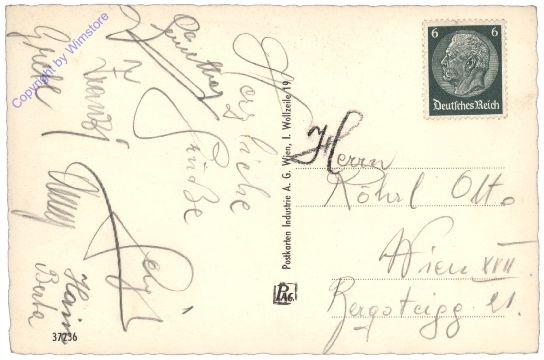 Copyright by Wimstore
Herzliche
Grüße
Franzi
Hain
Berta
37236
Postkarten Industrie A. G. Wien, I. Wollzeile 19
PAG.
6 6
Deutsches Reich
Herrn
Röhrl Otto
Wien XVII
Bergsteigg 21.